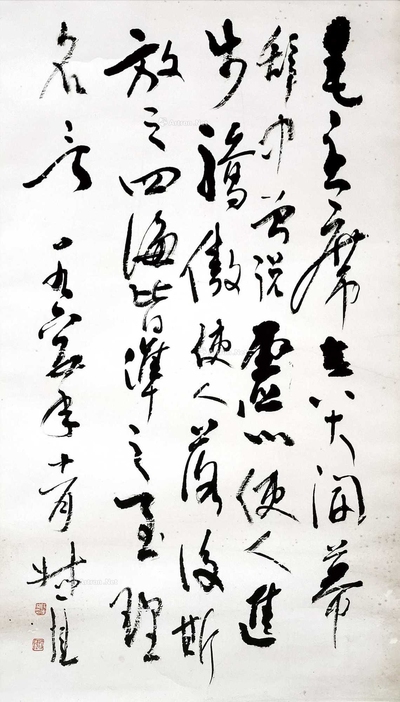 毛主席在八大開幕
辭中曾說虛心使人進
步驕傲使人落後斯
放之四海皆準之至理
名言 一九六年十月